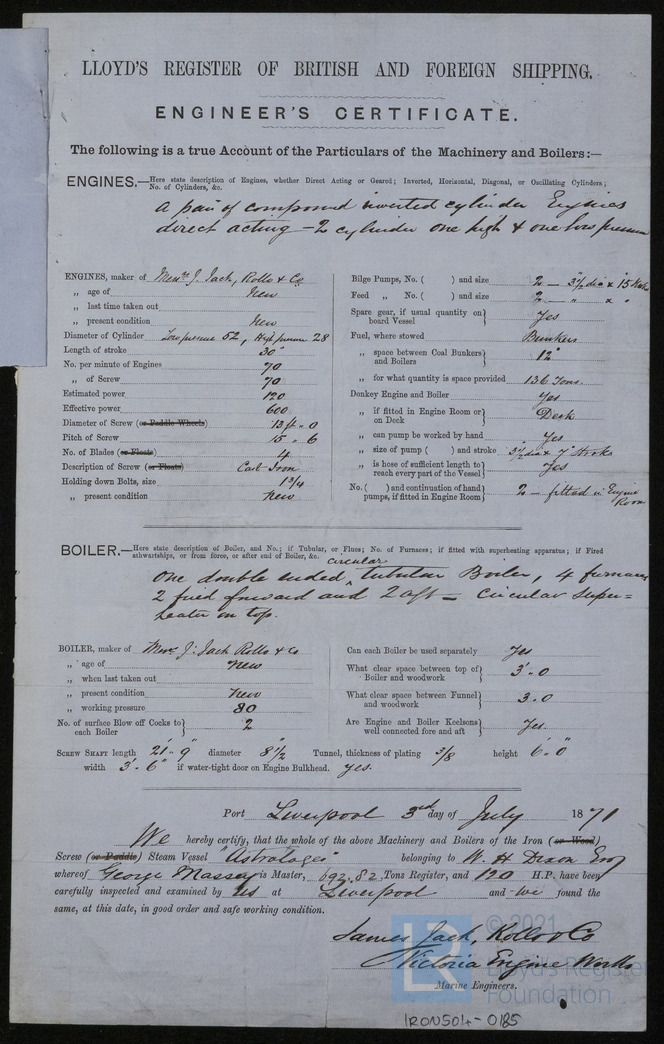 LLOYD'S REGISTER OF BRITISH AND FOREIGN SHIPPING.
ENGINEER'S CERTIFICATE.
The following is a true Account of the Particulars of the Machinery and Boilers:—
ENGINES.—Here state description of Engines, whether Direct Acting or Geared; Inverted, Horizontal, Diagonal, or Oscillating Cylinders; No. of Cylinders, &c.
A pair of compound inverted cylinder Engines
direct acting – 2 cylinder one high & one low pressure
ENGINES, maker of Messrs J. Jack, Rollo & Co
„ age of New
„ last time taken out
„ present condition New
Diameter of Cylinder Low pressure 52, High pressure 28
Length of stroke 30"
No. per minute of Engines 70
„ of Screw 70
Estimated power 120
Effective power 600
Diameter of Screw (or Paddle Wheels) 13 ft . 0
Pitch of Screw 15 . 6
No. of Blades (or Floats) 4
Description of Screw (or Floats) Cast Iron
Holding down Bolts, size 1 3/4
„ present condition New
Bilge Pumps, No. ( ) and size 2 – 3 1/2 dia x 15
Feed „ No. ( ) and size 2 – „ x „
Spare gear, if usual quantity on board Vessel Yes
Fuel, where stowed Bunkers
„ space between Coal Bunkers and Boilers 12"
„ for what quantity is space provided 136 Tons.
Donkey Engine and Boiler Yes
„ if fitted in Engine Room or on Deck Deck
„ can pump be worked by hand Yes
„ size of pump ( ) and stroke 3 1/2 dia x 7" stroke
„ is hose of sufficient length to reach every part of the Vessel Yes
No. ( ) and continuation of hand pumps, if fitted in Engine Room 2 – fitted in Engine Room
BOILER.—Here state description of Boiler, and No.; if Tubular, or Flues; No. of Furnaces; if fitted with superheating apparatus; if Fired
athwartships, or from force, or after end of Boiler, &c.
circular
One double ended ^ tubular Boiler, 4 furnaces
2 fired forward and 2 aft – Circular Super=
heater on top.
BOILER, maker of Messrs J. Jack Rollo & Co
„ age of New
„ when last taken out
„ present condition New
„ working pressure 80
No. of surface Blow off Cocks to each Boiler 2
Can each Boiler be used separately Yes
What clear space between top of Boiler and woodwork 3' . 0
What clear space between Funnel and woodwork 3 . 0
Are Engine and Boiler Keelsons well connected fore and aft Yes.
SCREW SHAFT length 21' . 9" diameter 8 1/2" Tunnel, thickness of plating 3/8 height 6' . 0"
width 3' . 6" if water-tight door on Engine Bulkhead. Yes.
Port Liverpool 3rd day of July 1871
We hereby certify, that the whole of the above Machinery and Boilers of the Iron (or Wood)
Screw (or Paddle) Steam Vessel "Astrologer" belonging to W. H. Dixon Esq
whereof George Massey is Master, 692.82 Tons Register, and 120 H.P. have been
carefully inspected and examined by us at Liverpool and we found the
same, at this date, in good order and safe working condition.
James Jack, Rollo & Co
Victoria Engine Works
Marine Engineers.
LR
© 2021
Lloyd's Register
Foundation
IRON504-0185